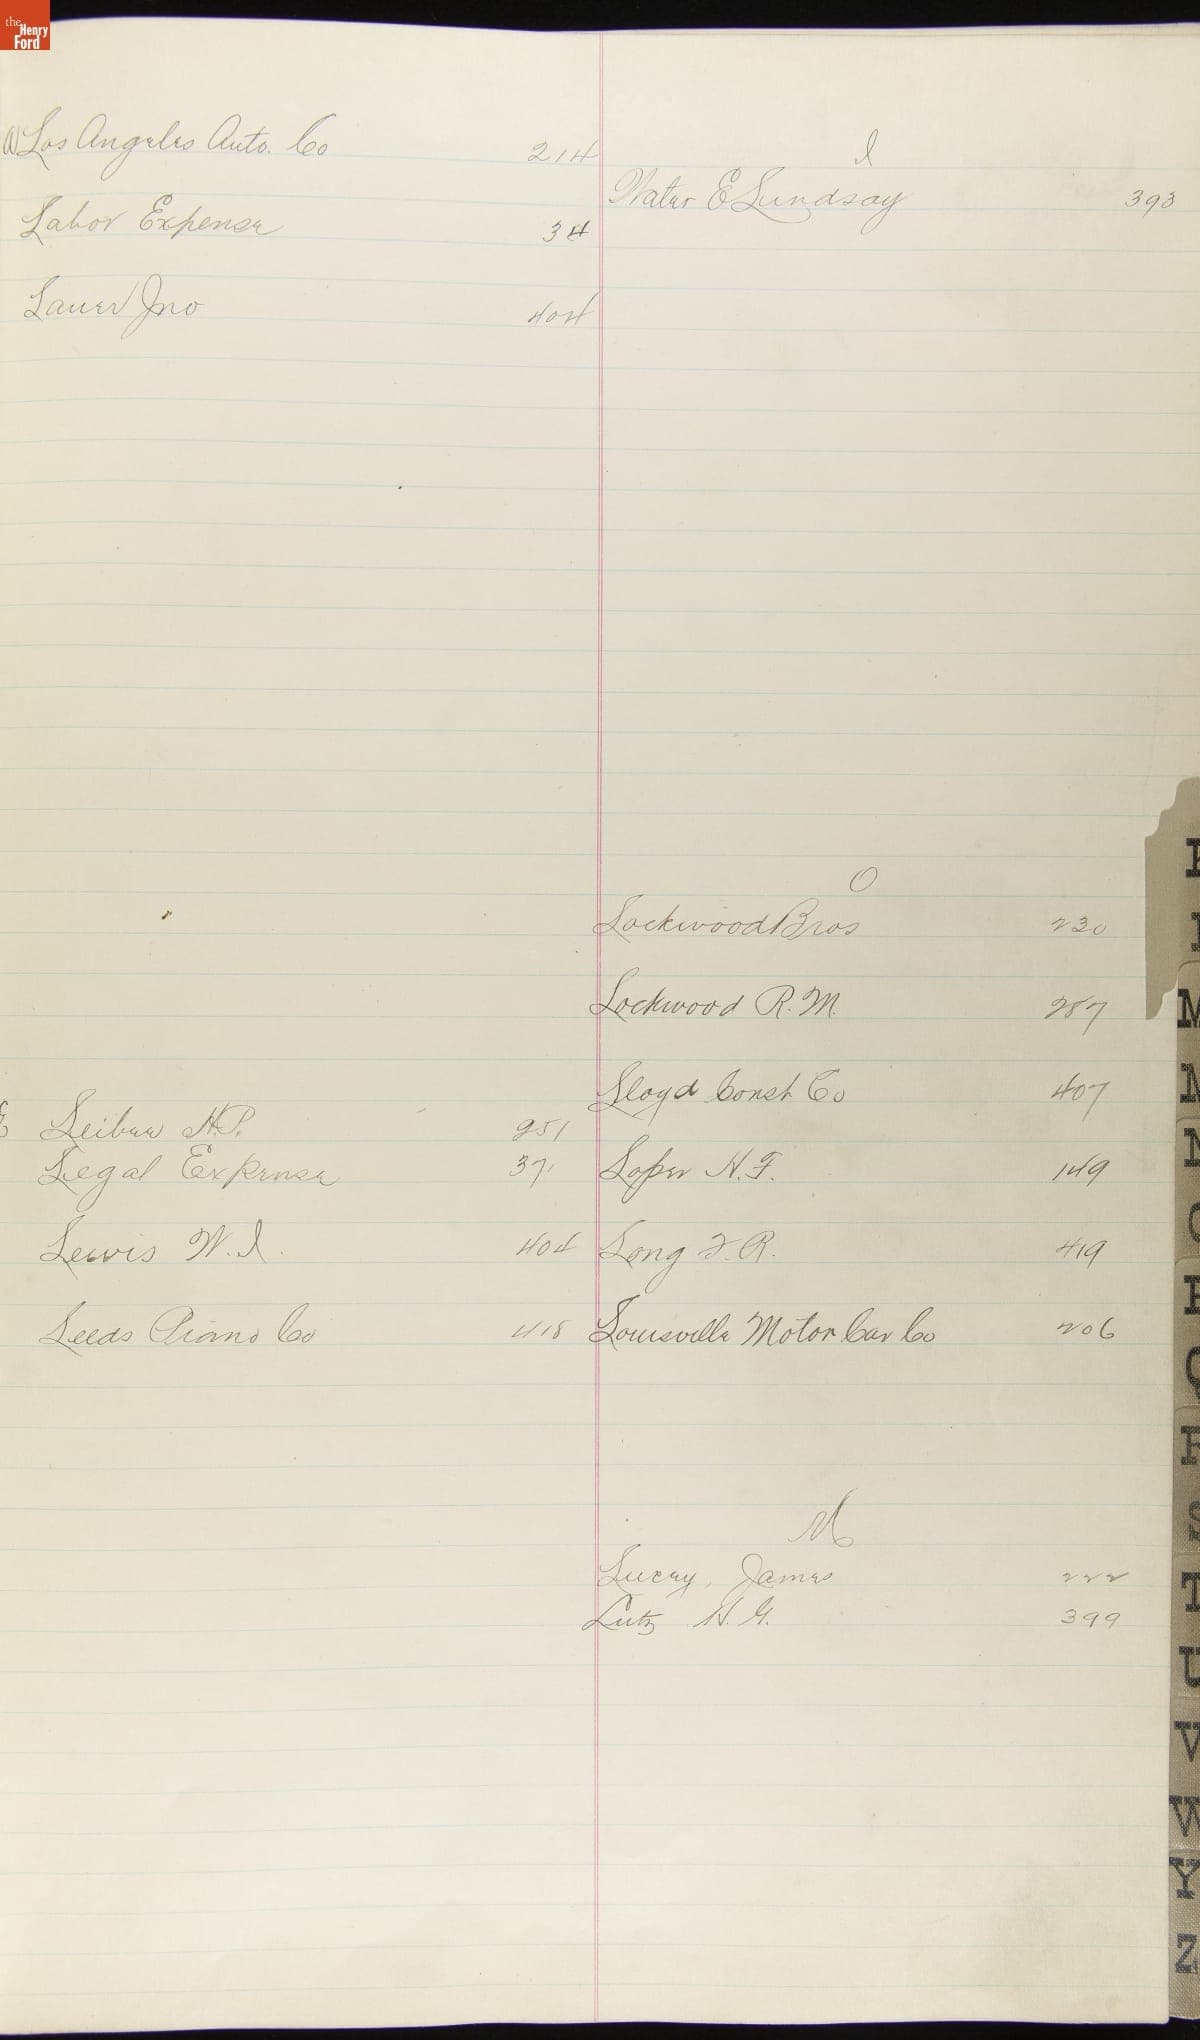 the
Henry
Ford
a
Los Angeles Auto. Co 214
Labor Expense 34
Lauer Jno 404
E
Leibee H.P. 251
Legal Expense 37
Lewis W.I. 404
Leeds Piano Co 418
I
Water E Lundsay 393
O
Lockwood Bros 230
Lockwood R.M. 287
Lloyd Const Co 407
Loper H.F. 149
Long F.R. 419
Louisville Motor Car Co 206
Lucey, James 222
Lutz H.G. 399
K
L
M
M
N
O
P
Q
R
S
T
U
V
W
Y
Z